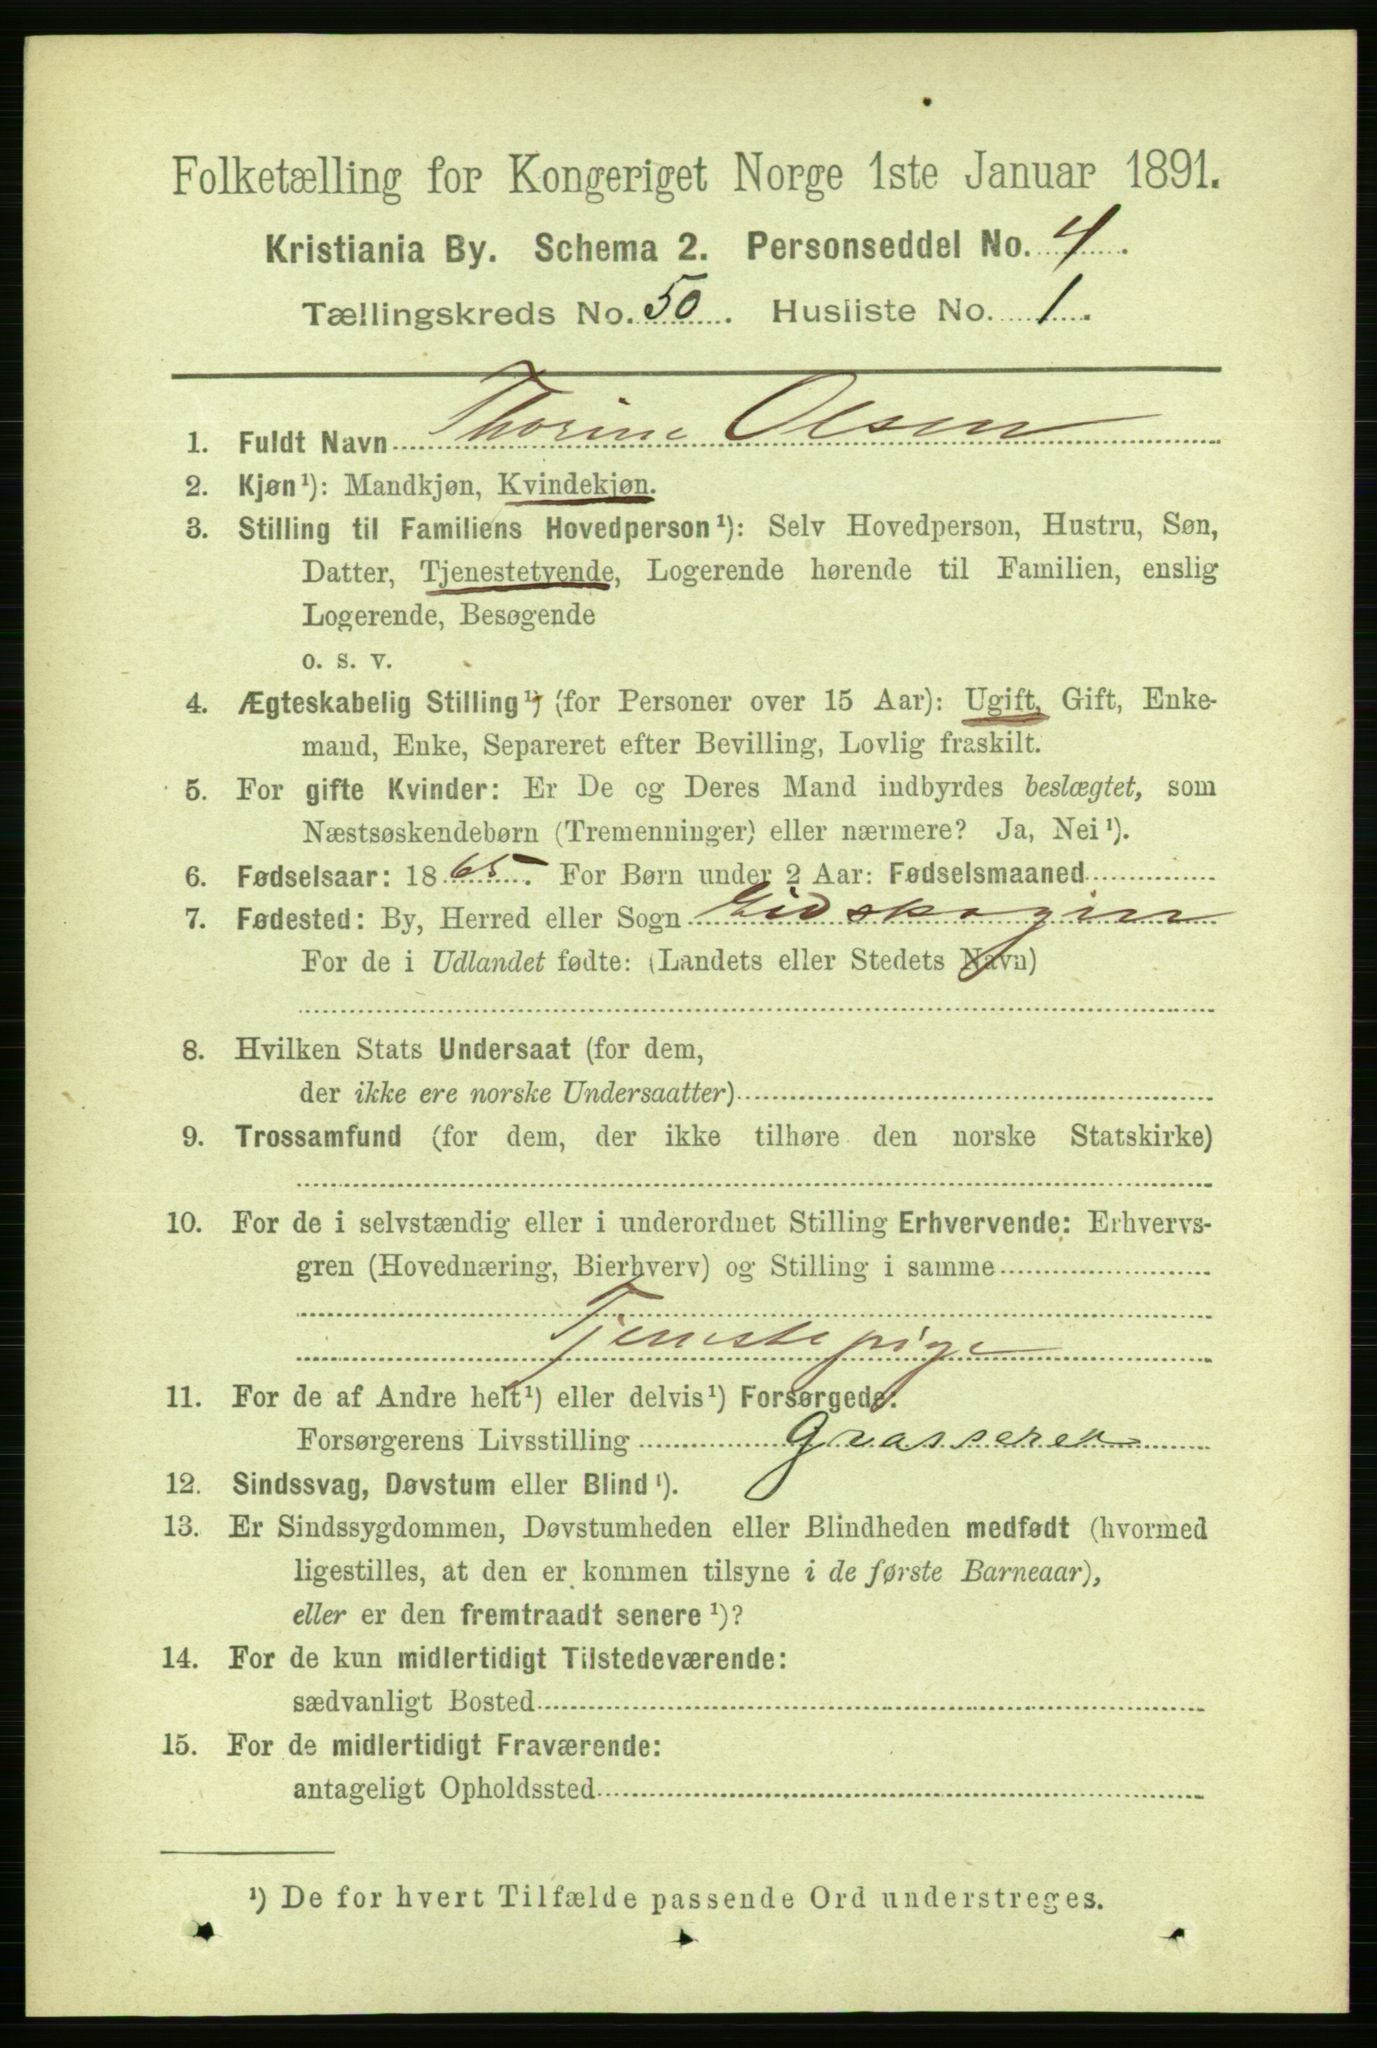 Folketælling for Kongeriget Norge 1ste Januar 1891.
Kristiania By. Schema 2. Personseddel No. 4.
Tællingskreds No. 50. Husliste No. 1.
1. Fuldt Navn Thorine Olsen
2. Kjøn¹): Mandkjøn, Kvindekjøn.
3. Stilling til Familiens Hovedperson¹): Selv Hovedperson, Hustru, Søn,
Datter, Tjenestetyende, Logerende hørende til Familien, enslig
Logerende, Besøgende
o. s. v.
4. Ægteskabelig Stilling¹) (for Personer over 15 Aar): Ugift, Gift, Enke-
mand, Enke, Separeret efter Bevilling, Lovlig fraskilt.
5. For gifte Kvinder: Er De og Deres Mand indbyrdes beslægtet, som
Næstsøskendebørn (Tremenninger) eller nærmere? Ja, Nei¹).
6. Fødselsaar: 1865. For Børn under 2 Aar: Fødselsmaaned
7. Fødested: By, Herred eller Sogn Eidskogen
For de i Udlandet fødte: (Landets eller Stedets Navn)
8. Hvilken Stats Undersaat (for dem,
der ikke ere norske Undersaatter)
9. Trossamfund (for dem, der ikke tilhøre den norske Statskirke)
10. For de i selvstændig eller i underordnet Stilling Erhvervende: Erhvervs-
gren (Hovednæring, Bierhverv) og Stilling i samme
Tjenestepige
11. For de af Andre helt¹) eller delvis¹) Forsørgede:
Forsørgerens Livsstilling Grosserer
12. Sindssvag, Døvstum eller Blind¹).
13. Er Sindssygdommen, Døvstumheden eller Blindheden medfødt (hvormed
ligestilles, at den er kommen tilsyne i de første Barneaar),
eller er den fremtraadt senere¹)?
14. For de kun midlertidigt Tilstedeværende:
sædvanligt Bosted
15. For de midlertidigt Fraværende:
antageligt Opholdssted
¹) De for hvert Tilfælde passende Ord understreges.